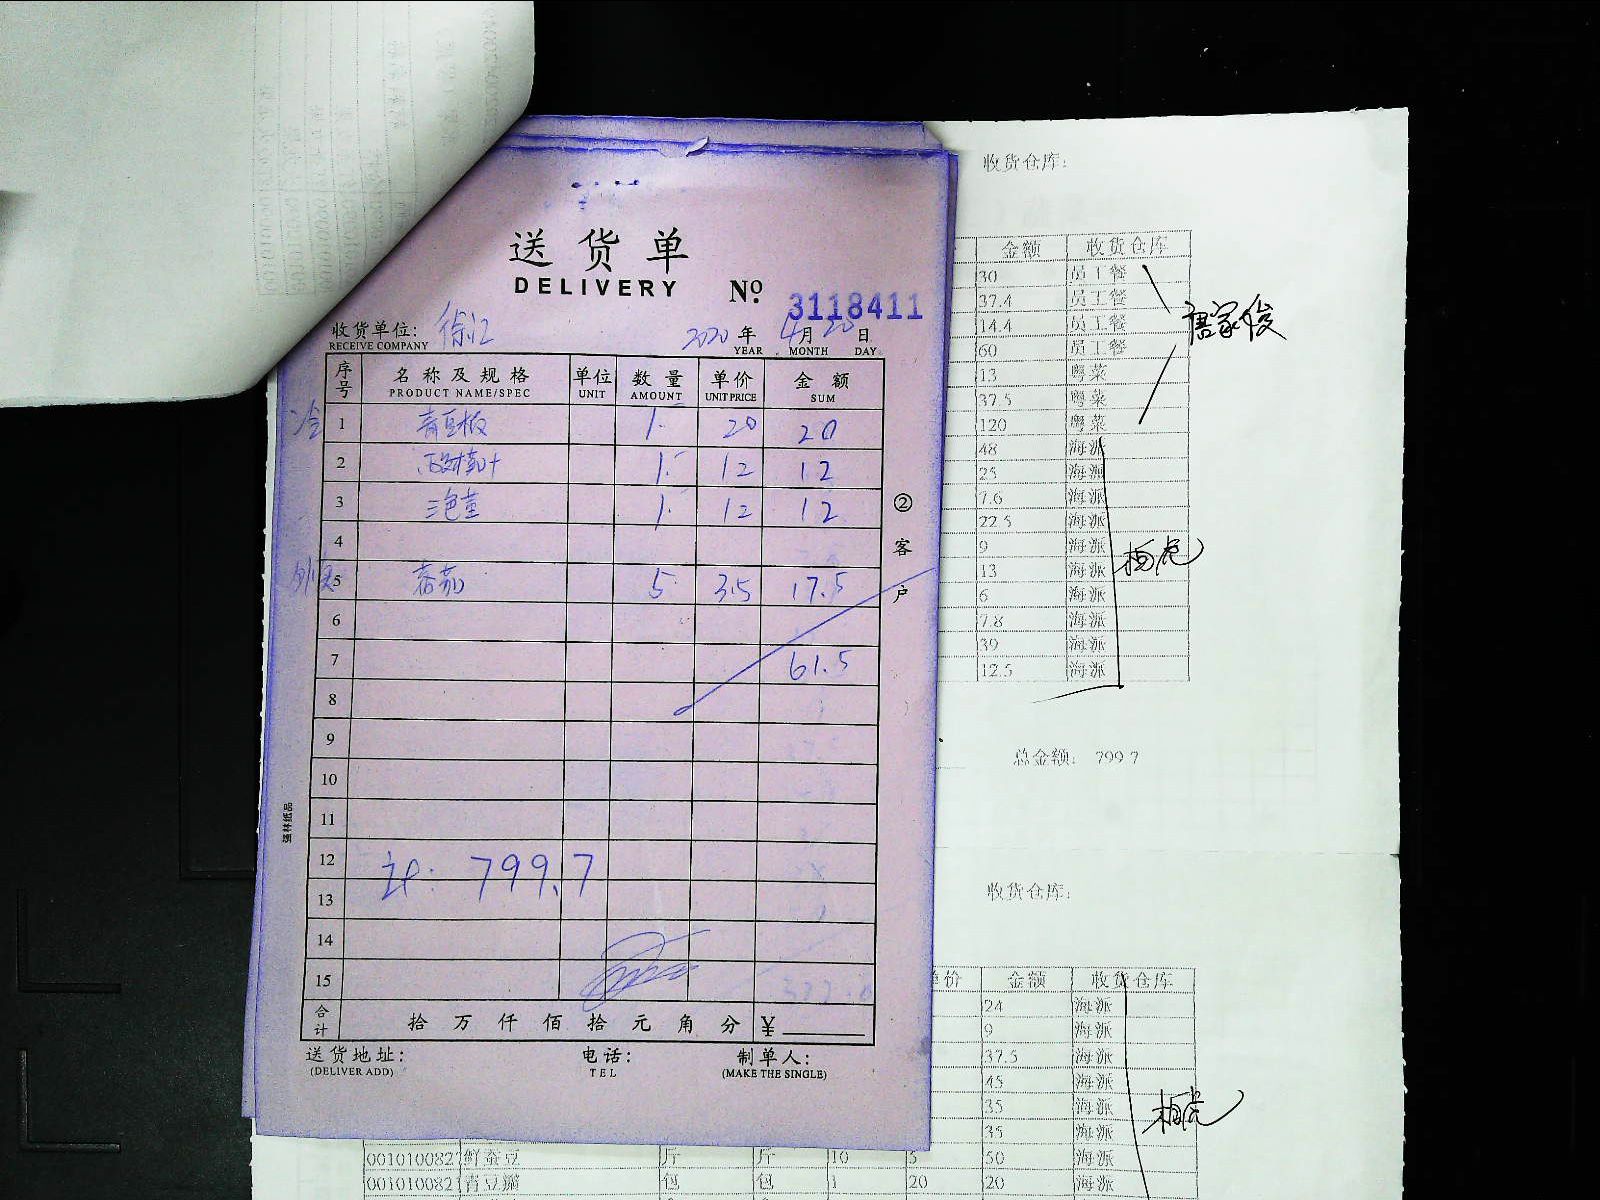 送货单
DELIVERY
No. 3118411
收货单位: 徐汇
RECEIVE COMPANY
2020 年 4月 20 日
YEAR MONTH DAY
序号 名称及规格 单位 数量 单价 金额
PRODUCT NAME/SPEC UNIT AMOUNT UNIT PRICE SUM
冷 1 青豆板 1 20 20
2 1 12 12
3 1 12 12
4
5 5 3.5 17.5
6
7 61.5
8
9
10
11
12 计: 799.7
13
14
15
合计 拾 万 仟 佰 拾 元 角 分 ¥
送货地址: 电话: 制单人:
(DELIVER ADD) TEL (MAKE THE SINGLE)
②客户
强林纸品
收货仓库:
金额 收货仓库
30 员工餐
37.4 员工餐
14.4 员工餐
60 员工餐
13 粤菜
37.5 粤菜
120 粤菜
48 海派
25 海派
7.6 海派
22.5 海派
9 海派
13 海派
6 海派
7.8 海派
39 海派
12.5 海派
唐家俊
总金额: 799.7
收货仓库:
单价 金额 收货仓库
24 海派
9 海派
37.5 海派
45 海派
35 海派
35 海派
001010082 鲜蚕豆 斤 斤 10 5 50 海派
001010082 青豆瓣 包 包 1 20 20 海派